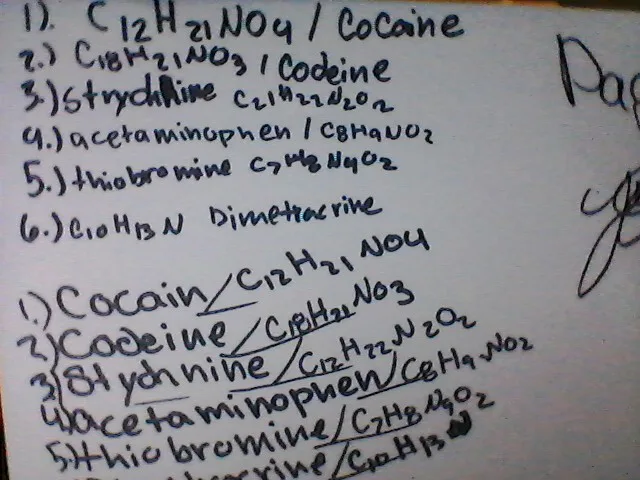 1). C12H21NO4 / Cocaine
2.) C18H21NO3 / Codeine
3.) Strychnine C21H22N2O2
4.) acetaminophen / C8H9NO2
5.) thiobromine C7H8N4O2
6.) C10H13N Dimetracrine
1.) Cocain / C12H21NO4
2) Codeine / C18H21NO3
3) Stychnine / C12H22N2O2
4) acetaminophen / C8H9NO2
5.) thiobromine / C7H8N4O2
/ C10H13N